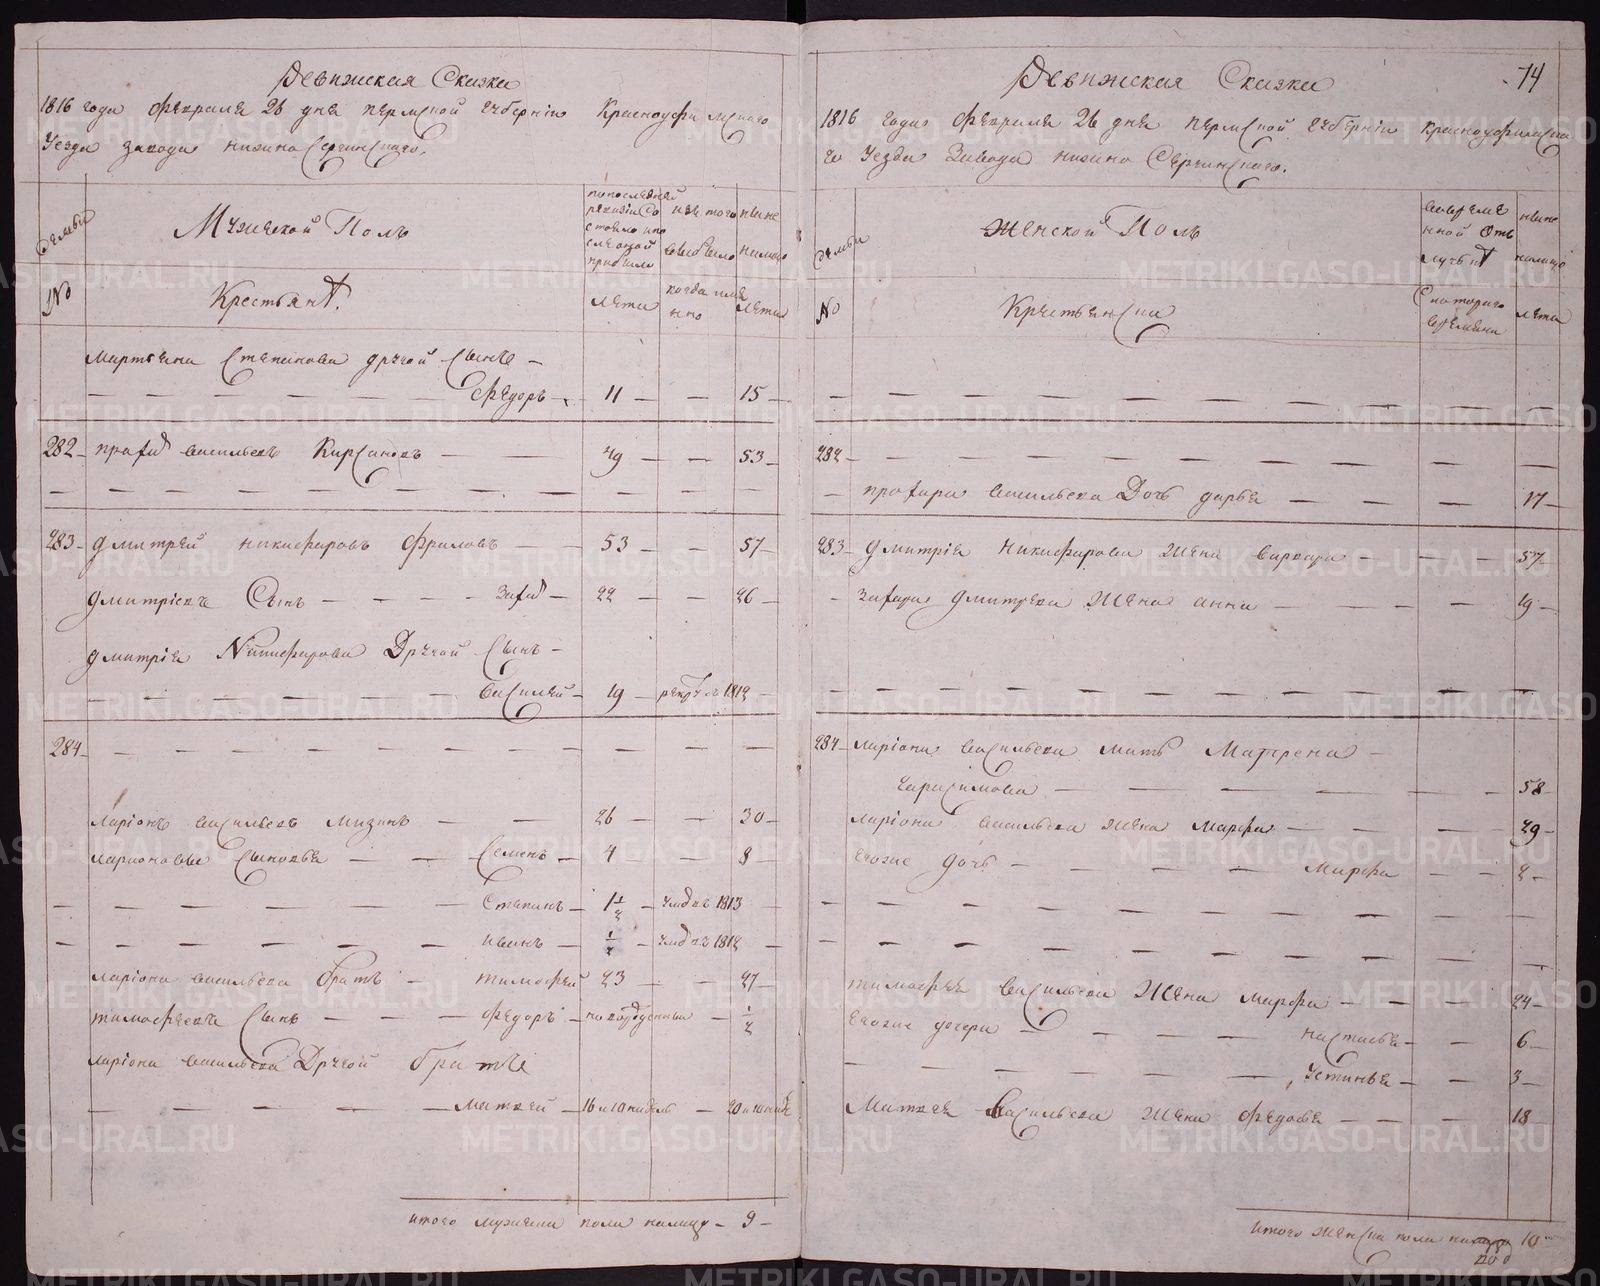 Ревижская Сказка
1816 года февраля 26 дня пермской губернiи Красноуфимскаго
Уезда завода нижно Сергинскаго.
Семьи
Мужеской Полъ
по последней
ревизiи Со
стояло и по
слеъ оной
прибыло
изъ того
выбыло
ныне
налицо
№
Крестьянъ.
лета
когда имя
нно
лета
мартына степанова другой сынъ
федоръ 11 15
282 прохоръ васильевъ Кирсановъ 49 53
283 дмитрей никифаровъ фриловъ 53 57
дмитрiевъ Сынъ захаръ 22 26
дмитрiя Никифарова Другой сынъ
василей 19 рекрутъ 1812
284
ларiонъ васильевъ мизинъ 26 30
ларионовы сыновья Семенъ 4 8
степанъ 1 1/2 умеръ 1813
иванъ 1/2 умеръ 1812
ларiона васильева братъ тимофей 23 27
тимофеевъ сынъ федоръ новорожденный 1/2
ларiона васильева Другой братъ
матвей 16 и 10 недель 20 и 10 недель
итого мужеска пола налицо 9
74
Ревижская Сказка
1816 года февраля 26 дня пермской губернiи красноуфимска
го Уезда Завода нижно Сергинскаго.
Семьи
Женской Полъ
во време
нной отъ
лучкъ
ныне
налицо
№
Крестьянска
Скотораго
времяни
лета
282
прохора васильева Дочь дарья 17
283 дмитрiя никифарова жена варвара 57
захара дмитрева жена анна 19
284 ларiона васильева мать Матрена
гарасимова 58
ларiона васильева жена марфа 29
Евоже дочь Марфа 2
тимофея васильева жена марфа 24
Евоже дочери настасья 6
Устинья 3
Матвея васильева жена федосья 18
Итого женска пола налицо 10